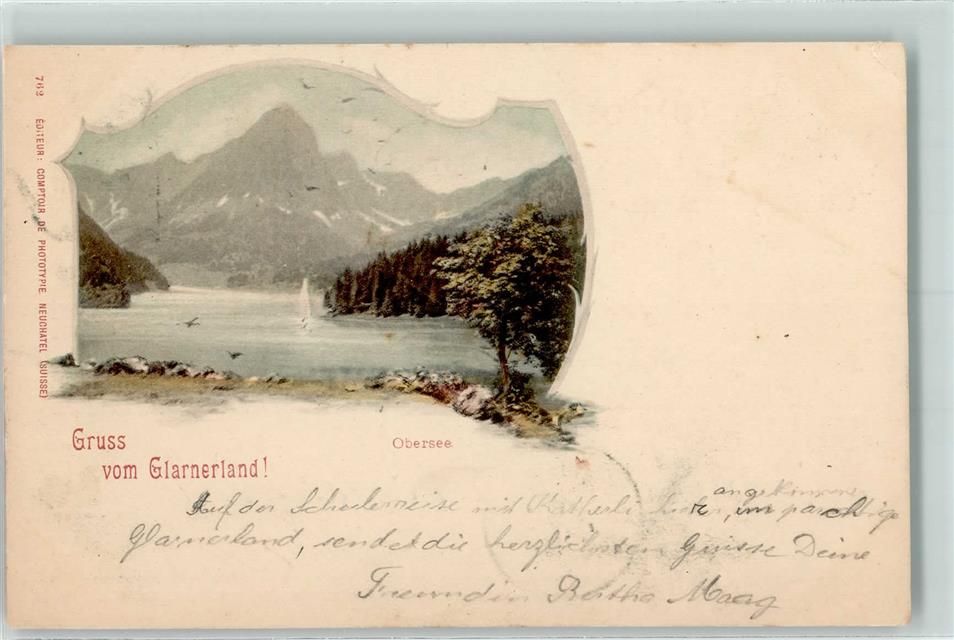 762 ÉDITEUR: COMPTOIR DE PHOTOTYPIE NEUCHATEL (SUISSE)
Gruss
vom Glarnerland!
Obersee
Auf der Schulerreise mit
Glarnerland, sendet die herzlichsten Grüsse Deine
Freundin Bertha Maag